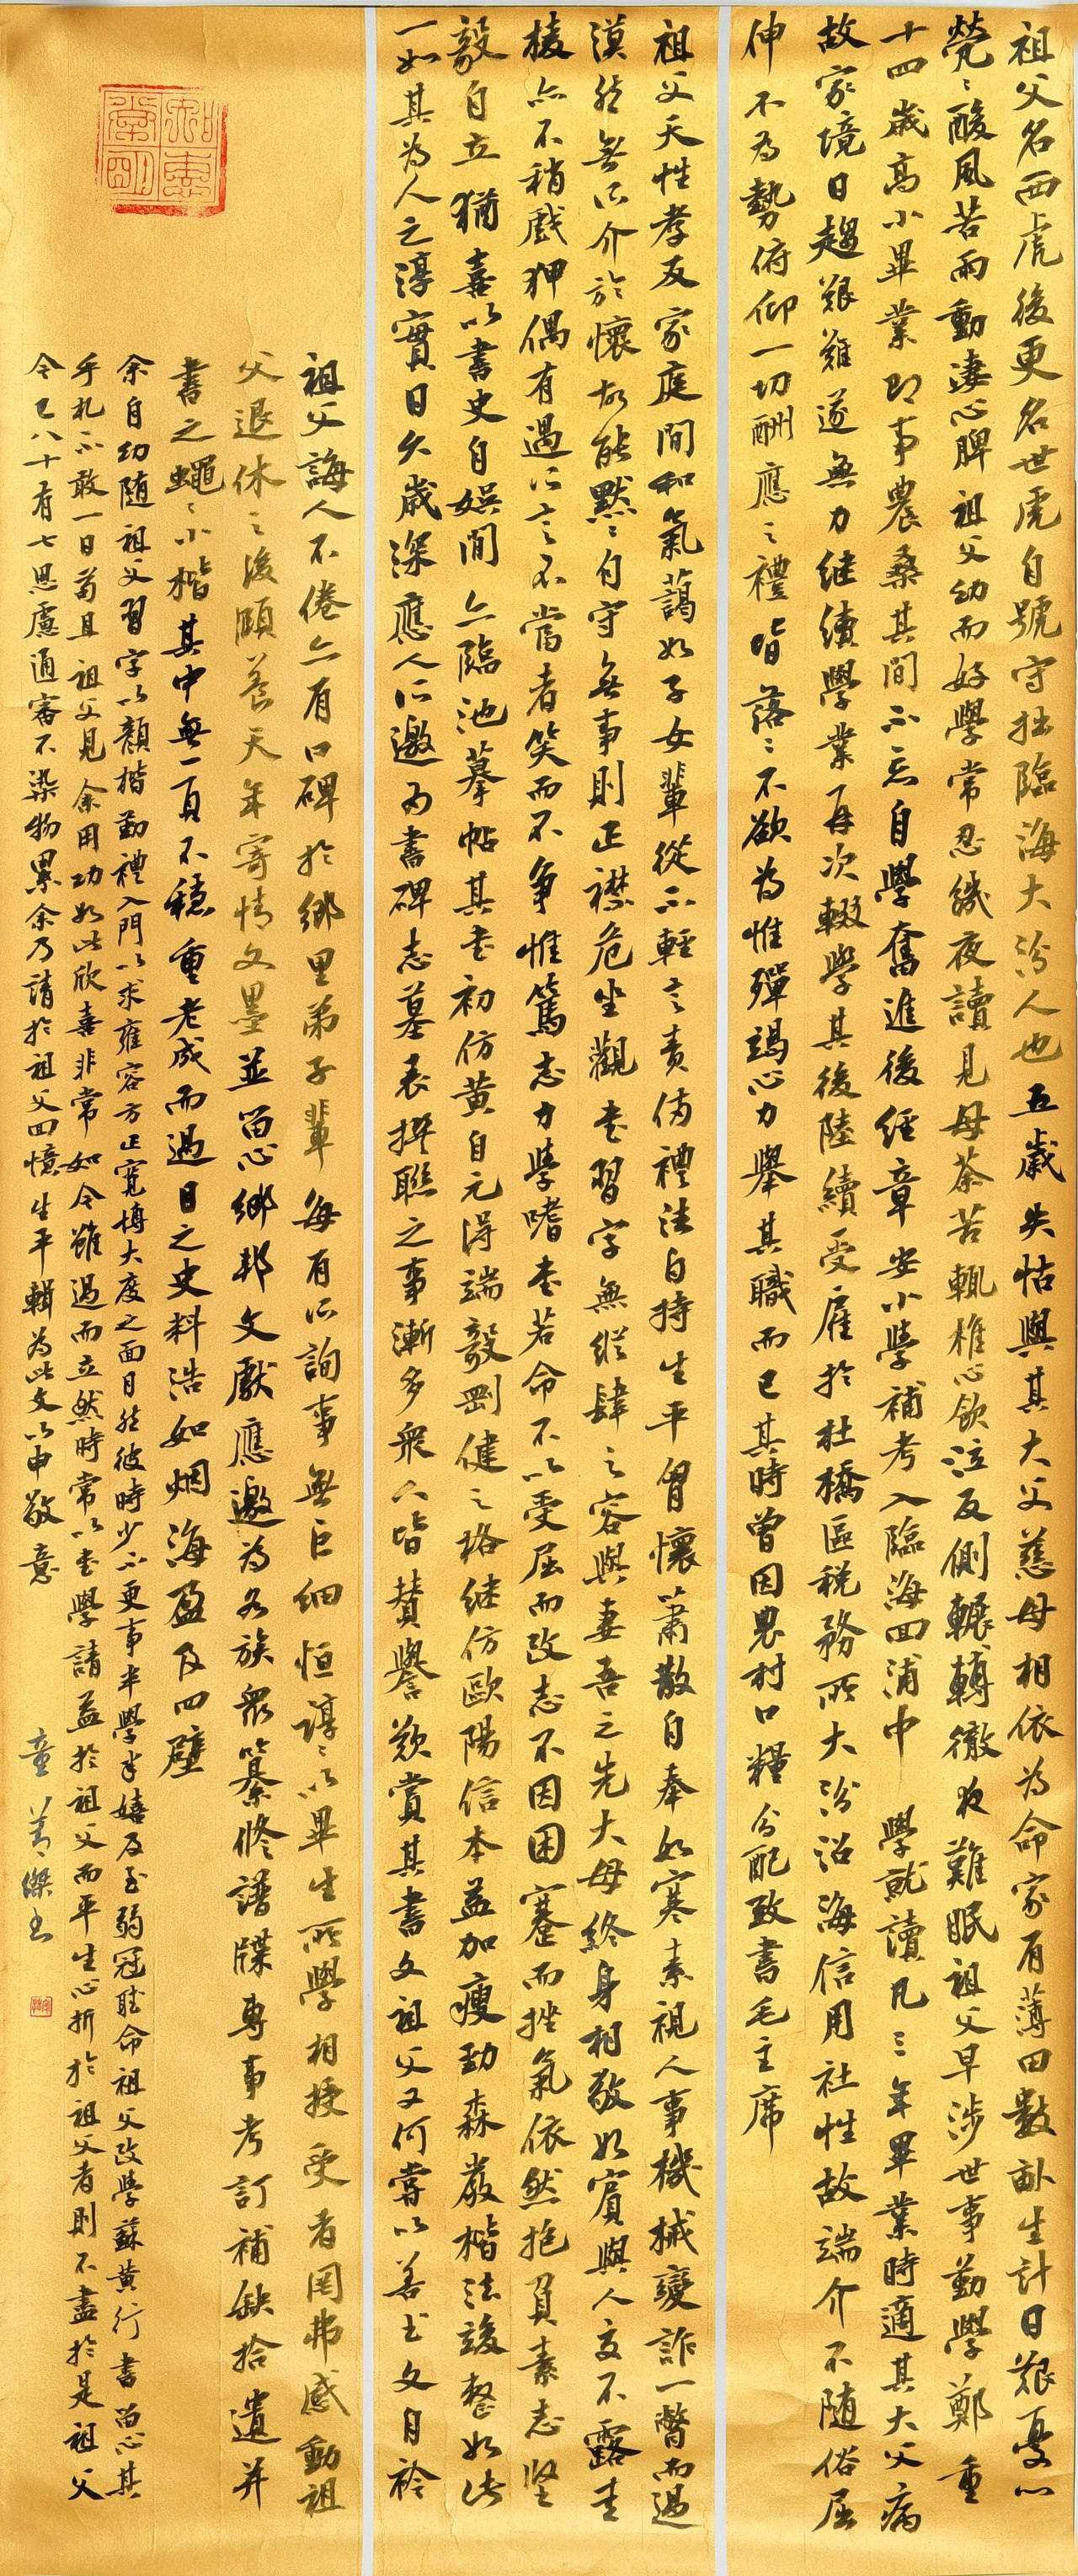 祖父名西虎後更名世虎自號守拙臨海大汾人也五歲失怙與其大父慈母相依為命家有薄田數畝生計日艱憂心
煢〻酸風苦雨動淒心脾祖父幼而好學常忍饑夜讀見母荼苦輒椎心飲泣反側輾轉徹夜難眠祖父早涉世事勤學鄭重
十四歲高小畢業即事農桑其間不忘自學奮進後經章安小學補考入臨海回浦中學就讀凡三年畢業時適其大父病
故家境日趨艱難遂無力继續學業再次輟學其後陸續受雇於杜橋區税務所大汾沿海信用社性故端介不随俗屈
伸不為勢俯仰一切酬應之禮皆落〻不欲為惟殫竭心力舉其職而已其時曾因農村口糧分配致書毛主席
祖父天性孝友家庭間和氣藹如子女輩從不輕言责備禮法自持生平胷懷萧散自奉如寒素視人事機械變詐一瞥而過
漠然無所介於懷故能默〻自守無事則正襟危坐觀書習字無縱肆之容與妻吾之先大母終身相敬如賓與人交不露圭
棱亦不稍戲狎偶有過所言不當者笑而不爭惟篤志力學嗜書若命不以受屈而改志不因困蹇而挫氣依然抱負素志堅
毅自立猶喜以書史自娱間亦臨池摹帖其書初仿黄自元得端毅剛健之格继仿歐陽信本益加瘦勁森嚴楷法竣整如此
一如其為人之淳實日久歲深應人所邀為書碑志墓表撰聯之事漸多衆人皆贊譽歎賞其書文祖父又何嘗以善書文自矜
祖父誨人不倦亦有口碑於鄉里弟子輩每有所詢事無巨细恒諄〻以畢生所學相授受者罔弗感動祖
父退休之後頤養天年寄情文墨並留心鄉邦文獻應邀為各族衆纂修譜牒專事考訂補缺拾遺并
書之蠅〻小楷其中無一頁不穩重老成而過目之史料浩如烟海盈及四壁
余自幼随祖父習字以顏楷勤禮入門以求雍容方正寬博大度之面目然彼時少不更事半學半嬉及至弱冠聽命祖父改學蘇黄行書留心其
手札不敢一日苟且祖父見余用功如此欣喜非常如今雖過而立然時常以書學請益於祖父而平生心折於祖父者則不盡於是祖父
今已八十有七思慮通審不染物累余乃請於祖父回憶生平輯為此文以申敬意